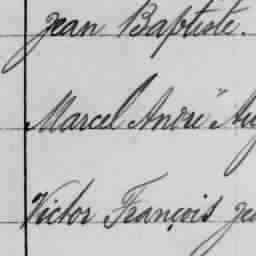 Jean Baptiste.
Marcel André
Victor François